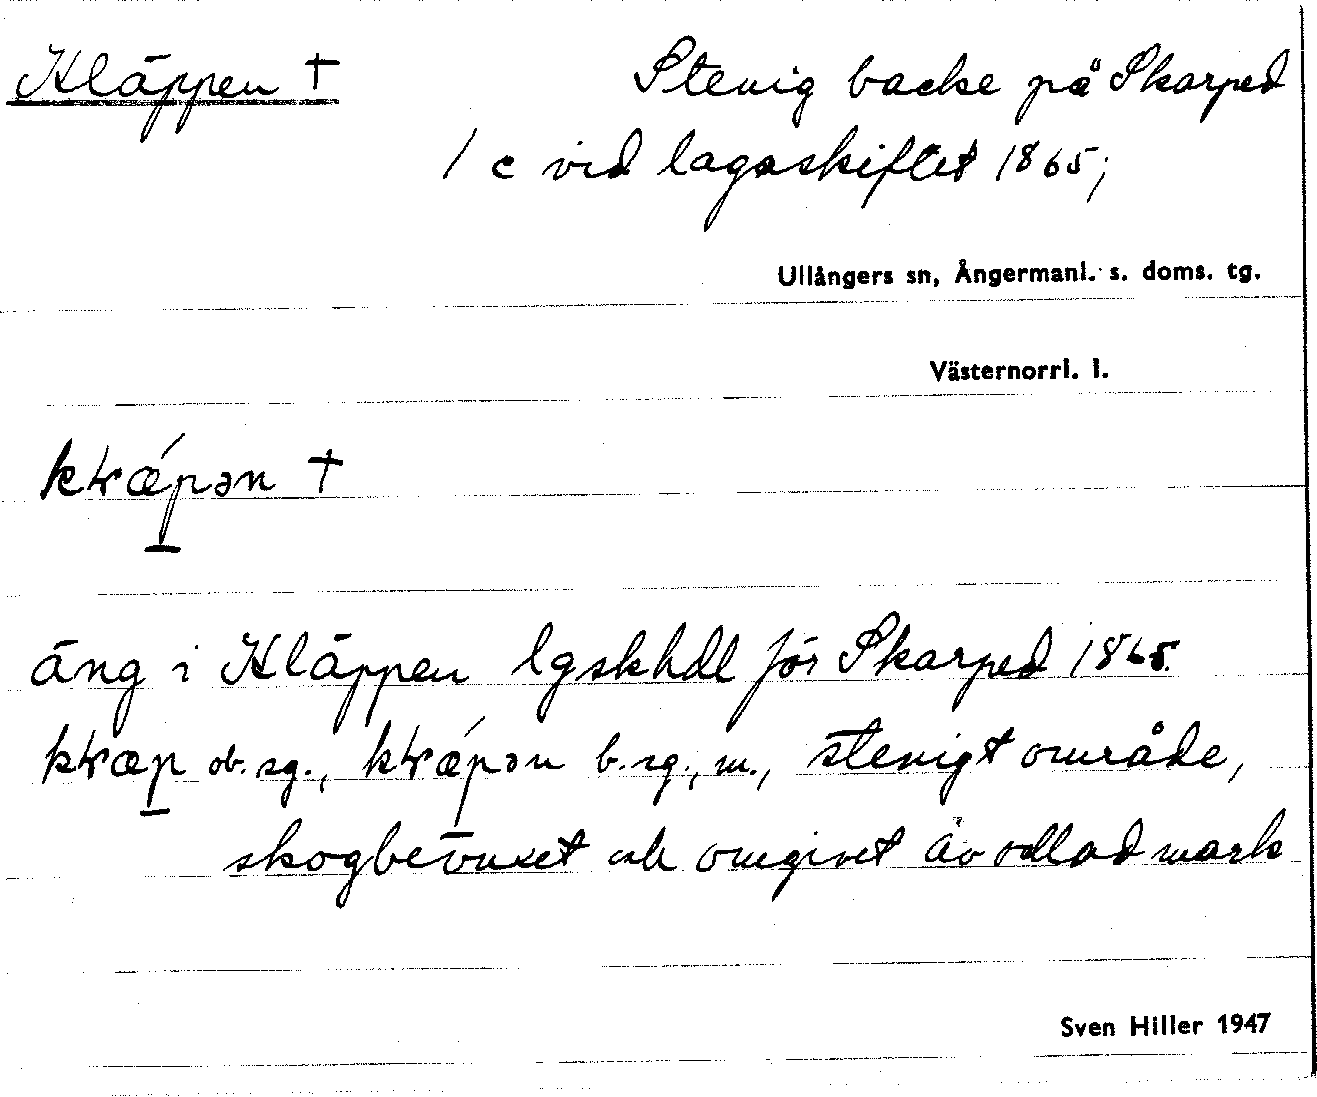 Kläppen † Stenig backe på Skarped
1 c vid lagaskiftet 1865;
Ullångers sn, Ångermanl. s. doms. tg.
Västernorrl. l.
†
äng i Kläppen lgskhdl för Skarped 1865.
ob. sg., b. sg., m., stenigt område,
skogbevuxet och omgivet av odlad mark
Sven Hiller 1947